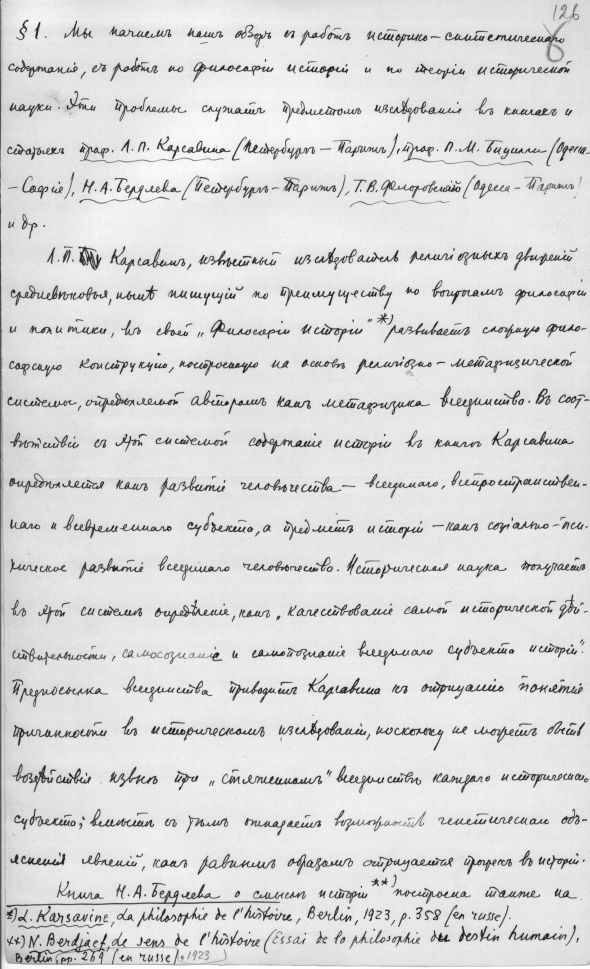 126
§ 1. Мы начнемъ нашъ обзоръ съ работъ историко-синтетическаго
содержанія, съ работъ по философіи исторіи и по теоріи исторической
науки. Эти проблемы служатъ предметомъ изслѣдованія въ книгахъ и
статьяхъ проф. Л.П. Карсавина (Петербургъ – Парижъ), проф. П.М. Бицилли (Одесса-
– Софія), Н.А. Бердяева (Петербургъ – Парижъ), Г.В. Флоровскій (Одесса – Парижъ)
и др.
Л.П. Карсавинъ, извѣстный изслѣдователь религіозныхъ движеній
средневѣковья, нынѣ пишущій по преимуществу по вопросамъ философіи
и политики, въ своей „Философіи исторіи" *) развиваетъ сложную фило-
софскую конструкцію, построенную на основѣ религіозно-метафизической
системы, опредѣляемой авторомъ какъ метафизика всеединства. Въ соот-
вѣтствіи съ этой системой содержаніе исторіи въ книгѣ Карсавина
опредѣляется какъ развитіе человѣчества – всеединаго, всепространствен-
наго и всевременнаго субъекта, а предметъ исторіи – какъ соціально-пси-
хическое развитіе всеединаго человѣчества. Историческая наука получаетъ
въ этой системѣ опредѣленіе, какъ „качествованіе самой исторической дѣй-
ствительности, самосознаніе и самопознаніе всеединаго субъекта исторіи".
Предпосылка всеединства приводитъ Карсавина къ отрицанію понятія
причинности въ историческомъ изслѣдованіи, поскольку не можетъ быть
воздѣйствія извнѣ при „стяженномъ" всеединствѣ каждаго историческаго
субъекта; вмѣстѣ съ тѣмъ отпадаетъ возможность генетическаго объ-
ясненія явленій, какъ равнымъ образомъ отрицается прогрессъ въ исторіи.
Книга Н.А. Бердяева о смыслѣ исторіи **) построена также на
*) L. Karsavine, La philosophie de l'histoire, Berlin, 1923, p. 358 (en russe).
**) N. Berdjaef, Le sens de l'histoire (Essai de la philosophie du destin humain),
Berlin, pp. 269 (en russe), 1923